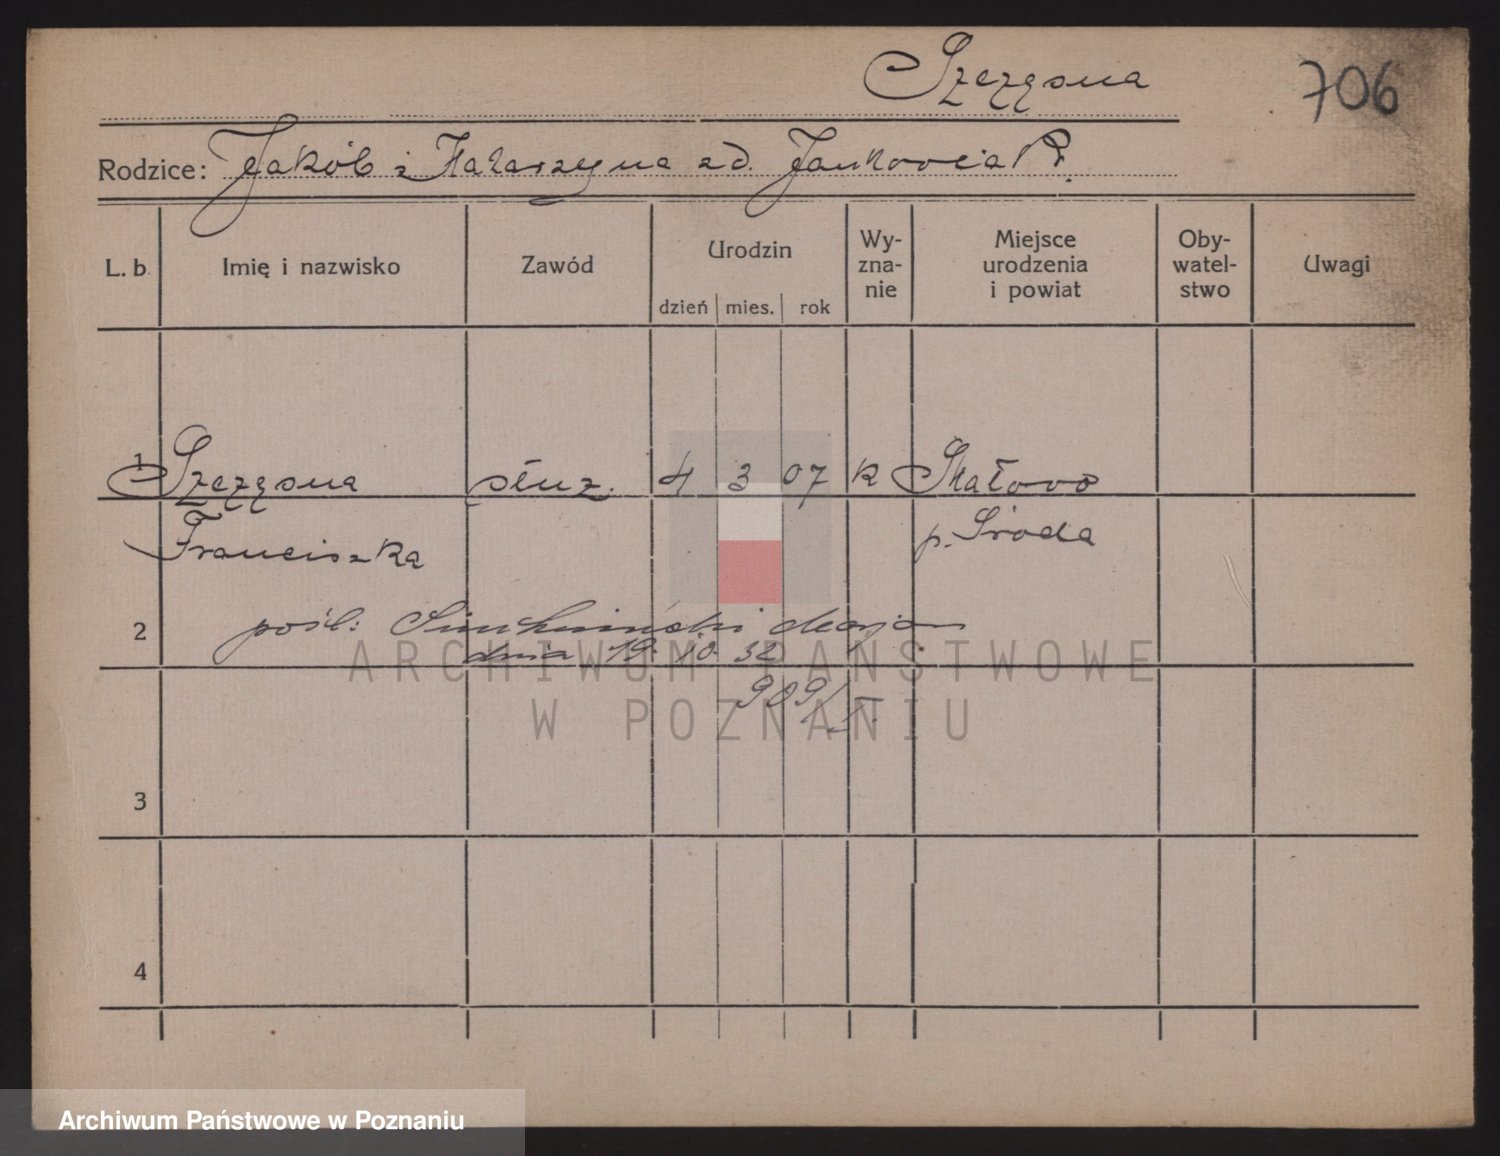 Szczęsna
706
Rodzice: Jakób i Katarzyna zd. Jankowiak
L. b. Imię i nazwisko Zawód Urodzin Wy-zna-nie Miejsce urodzenia i powiat Oby-watel-stwo Uwagi
dzień mies. rok
1 Szczęsna służ. 4 3 07 k Skałowo
Franciszka p. Środa
2 pośl: Marjan
dnia 19. 10. 32
909/
3
4
ARCHIWUM PAŃSTWOWE
W POZNANIU
Archiwum Państwowe w Poznaniu